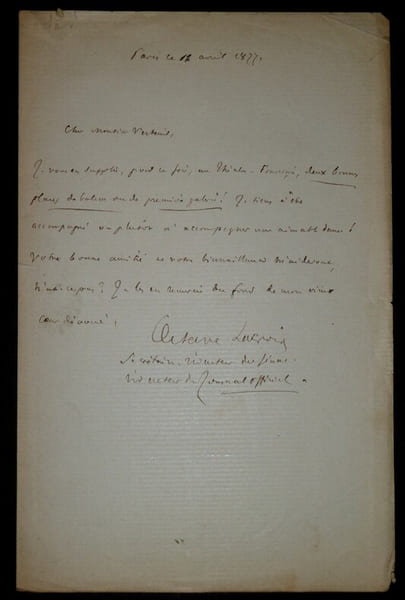 Paris ce 12 avril 1877.
Cher Monsieur Verteuil,
Je vous en supplie, pour ce soir, au Théâtre-Français, deux bonnes
places de balcon ou de première galerie! Je tiens à être
accompagné ou plutôt à accompagner une aimable dame!
Votre bonne amitié et votre bienveillance m'aideront,
n'est-ce pas? Je les en remercie du fond de mon vieux
cœur dévoué!
Octave Lacroix
Secrétaire-rédacteur du Sénat
rédacteur du Journal officiel.